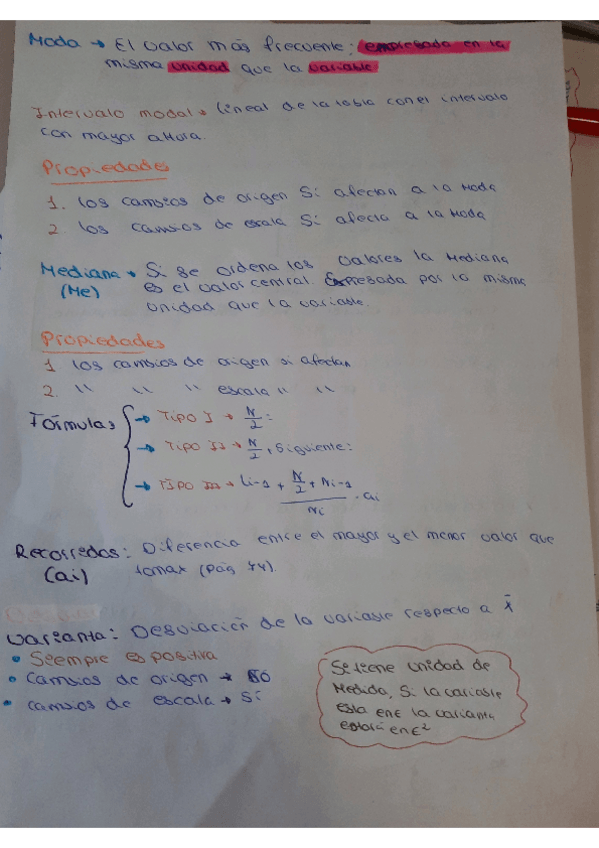 Moda → El valor más frecuente; expresada en la
misma unidad que la variable
Intervalo modal → lineal de la tabla con el intervalo
con mayor altura.
Propiedades
1. Los cambios de origen Sí afectan a la Moda
2. los cambios de escala Sí afecta a la Moda
Mediana → Si se ordena los valores la Mediana
(Me) es el valor central. Expresada por la misma
unidad que la variable.
Propiedades
1 los cambios de origen si afectan
2. " " " escala " "
Fórmulas → Tipo I → N/2 :
→ Tipo II → N/2, Siguiente:
→ Tipo III → Li-1 + (N/2 + Ni-1)/Ni · ai
Recorredos: Diferencia entre el mayor y el menor valor que
(ai) tomax (pág 74).
Varianta: Desviación de la variable respecto a x̄
• Siempre es positiva
• Cambios de origen → NO
• cambios de escala → Sí
Se tiene unidad de
Medida, Si la variable
esta en € la varianta
estará en €²